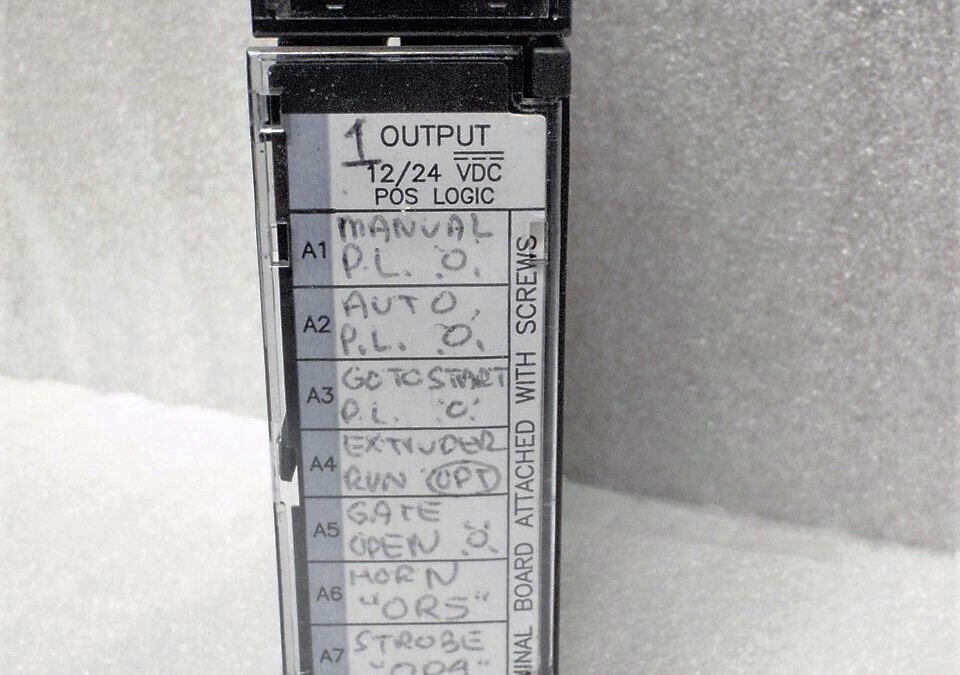 1 OUTPUT
12/24 VDC
POS LOGIC
A1 MANUAL
P.L.
A2 AUTO
P.L.
A3 GO TO START
P.L.
A4 EXTRUDER
RUN OPT
A5 GATE
OPEN
A6 HORN
"OR5"
A7 STROBE
MINAL BOARD ATTACHED WITH SCREWS